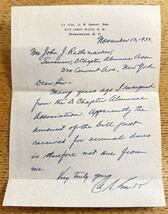 LT. COL. U. S. GRANT, 3RD
WASHINGTON, D. C.
November 17, 1937.
Mr. John J. Riethmacher
Treasurer, D Chapter Alumni Assn
370 Convent Ave, New York
Dear Sir:
Many years ago I resigned
from the D Chapter Alumnae
Association. Apparently the
amount of the bill just
received for annual dues
is therefore not due from
me.
Very truly yours,
U. S. Grant 3d